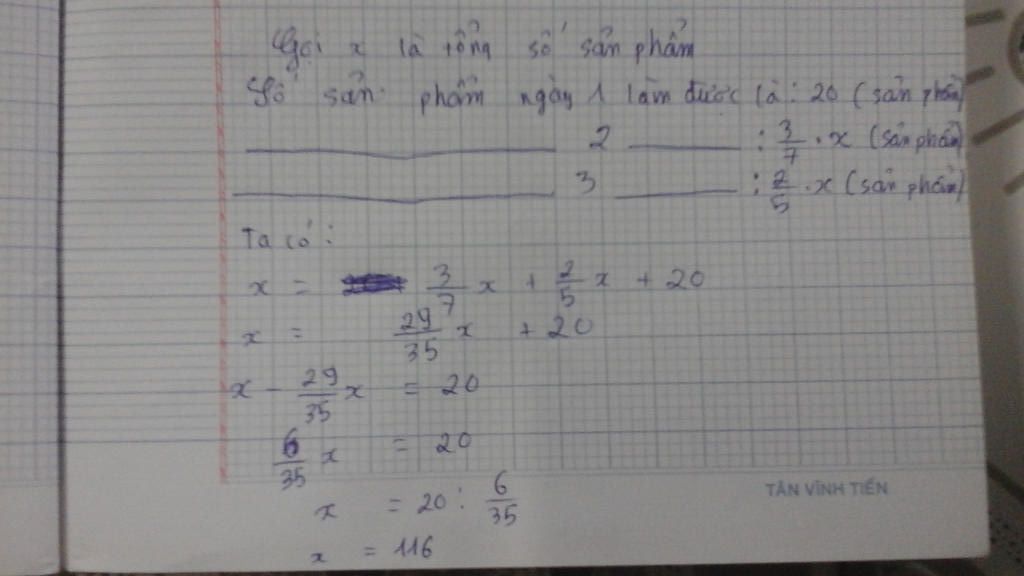 Gọi x là tổng số sản phẩm
Số sản phẩm ngày 1 làm được là : 20 (sản phẩm)
2 : 3/7 . x (sản phẩm)
3 : 2/5 . x (sản phẩm)
Ta có :
x = 3/7 x + 2/5 x + 20
x = 29/35 x + 20
x - 29/35 x = 20
6/35 x = 20
x = 20 : 6/35
x = 116
TÂN VĨNH TIẾN